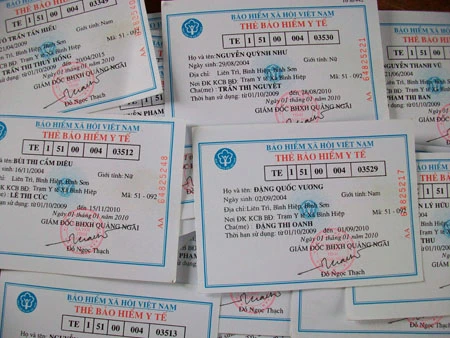 VÕ TRẦN TẤN HIẾU
21/04/2009
Giới tính: Nam
Liên Trì, Bình Hiệp, Bình Sơn
Trạm Y tế Xã Bình Hiệp
Mã: 51 - 092
TRẦN THỊ THUÝ HỒNG
từ 01/10/2009 đến 20/04/2015
Ngày 01 tháng 01 năm 2010
GIÁM ĐỐC BHXH QUẢNG NGÃI
Đỗ Ngọc Thạch
AA
BẢO HIỂM XÃ HỘI VIỆT NAM
THẺ BẢO HIỂM Y TẾ
TE 1 51 00 004 03530
Họ và tên: NGUYỄN QUỲNH NHƯ
Ngày sinh: 29/08/2004
Giới tính: Nữ
Địa chỉ: Liên Trì, Bình Hiệp, Bình Sơn
Nơi ĐK KCB BĐ: Trạm Y tế Xã Bình Hiệp
Mã: 51 - 092
Cha(mẹ): TRẦN THỊ NGUYỆT
Thời hạn sử dụng: từ 01/10/2009 đến 28/08/2010
Ngày 01 tháng 01 năm 2010
GIÁM ĐỐC BHXH QUẢNG NGÃI
AA 64825221
TE 1 51
NGUYỄN THANH VŨ
BẢO HIỂM XÃ HỘI VIỆT NAM
THẺ BẢO HIỂM Y TẾ
TE 1 51 00 004 03512
BÙI THỊ CẨM DIỆU
16/11/2004
Giới tính: Nữ
Liên Trì, Bình Hiệp, Bình Sơn
ĐK KCB BĐ: Trạm Y tế Xã Bình Hiệp
Mã: 51 - 092
LÊ THỊ CÚC
từ 01/10/2009 đến 15/11/2010
Ngày 01 tháng 01 năm 2010
GIÁM ĐỐC BHXH QUẢNG NGÃI
Đỗ Ngọc Thạch
AA 64825248
BẢO HIỂM XÃ HỘI VIỆT NAM
THẺ BẢO HIỂM Y TẾ
TE 1 51 00 004 03529
Họ và tên: ĐẶNG QUỐC VƯƠNG
Ngày sinh: 02/09/2004
Giới tính: Nam
Địa chỉ: Liên Trì, Bình Hiệp, Bình Sơn
Nơi ĐK KCB BĐ: Trạm Y tế Xã Bình Hiệp
Mã: 51 - 092
Cha(mẹ): ĐẶNG THỊ OANH
Thời hạn sử dụng: từ 01/10/2009 đến 01/09/2010
Ngày 01 tháng 01 năm 2010
GIÁM ĐỐC BHXH QUẢNG NGÃI
Đỗ Ngọc Thạch
AA 64825217
BẢO HIỂM XÃ HỘI VIỆT NAM
THẺ BẢO HIỂM Y TẾ
TE 1 51 00 004 03513
Đỗ Ngọc Thạch